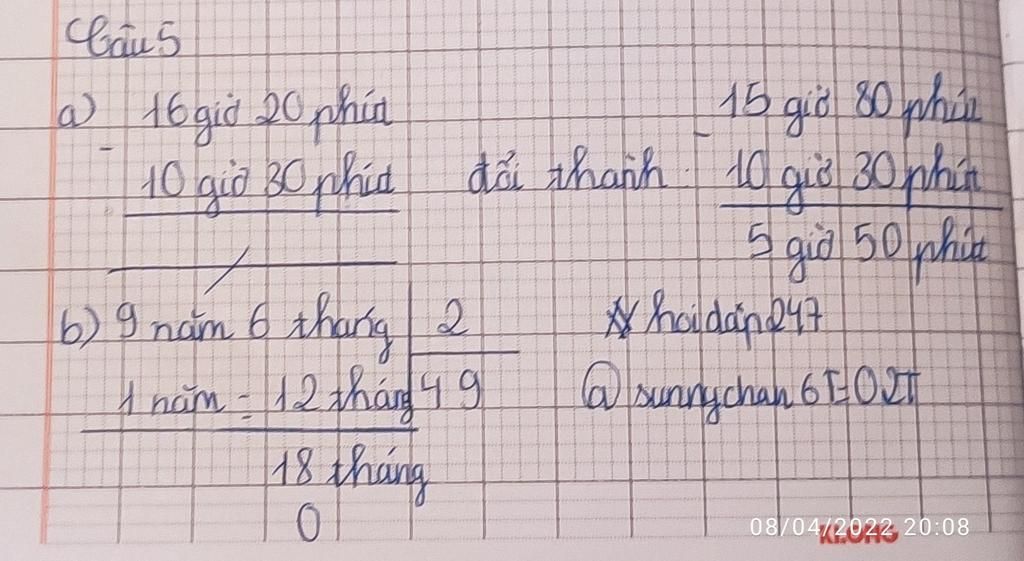 Câu 5
a) 16 giờ 20 phút
- 10 giờ 30 phút
đổi thành
15 giờ 80 phút
- 10 giờ 30 phút
5 giờ 50 phút
b) 9 năm 6 tháng 2
1 năm = 12 tháng 4 9
18 tháng
0
hoidap247
@sunnychan6
08/04/2022 20:08
KLONG